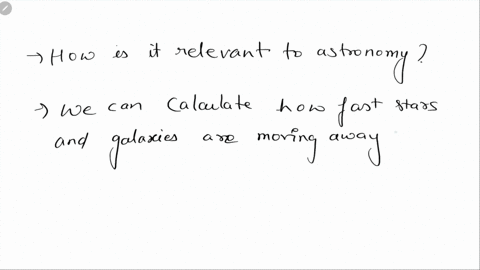 → How is it relevant to astronomy?
→ We can calculate how fast stars
and galaxies are moving away